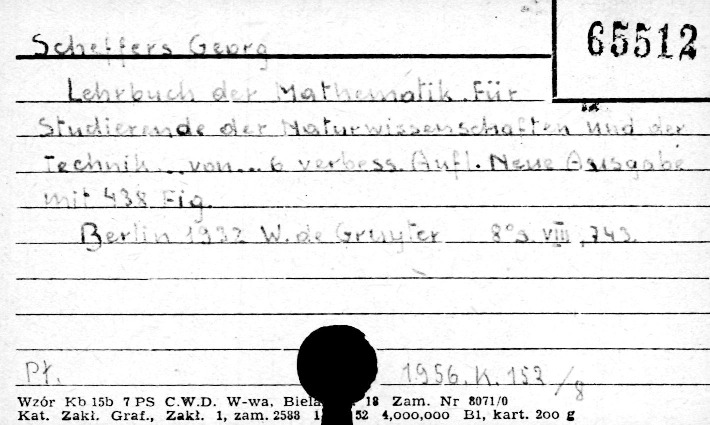 65512
Scheffers Georg
Lehrbuch der Mathematik. Für
Studierende der Naturwissenschaften und der
Technik...von...6 verbess. Aufl. Neue Ausgabe
mit 438 Fig.
Berlin 1932 W. de Gruyter 8° s. VIII, 743.
Pł. 1956. K. 152/8
Wzór Kb 15b 7 PS C.W.D. W-wa, 18 Zam. Nr 8071/0
Kat. Zakł. Graf., Zakł. 1, zam. 2588 52 4,000,000 B1, kart. 200 g